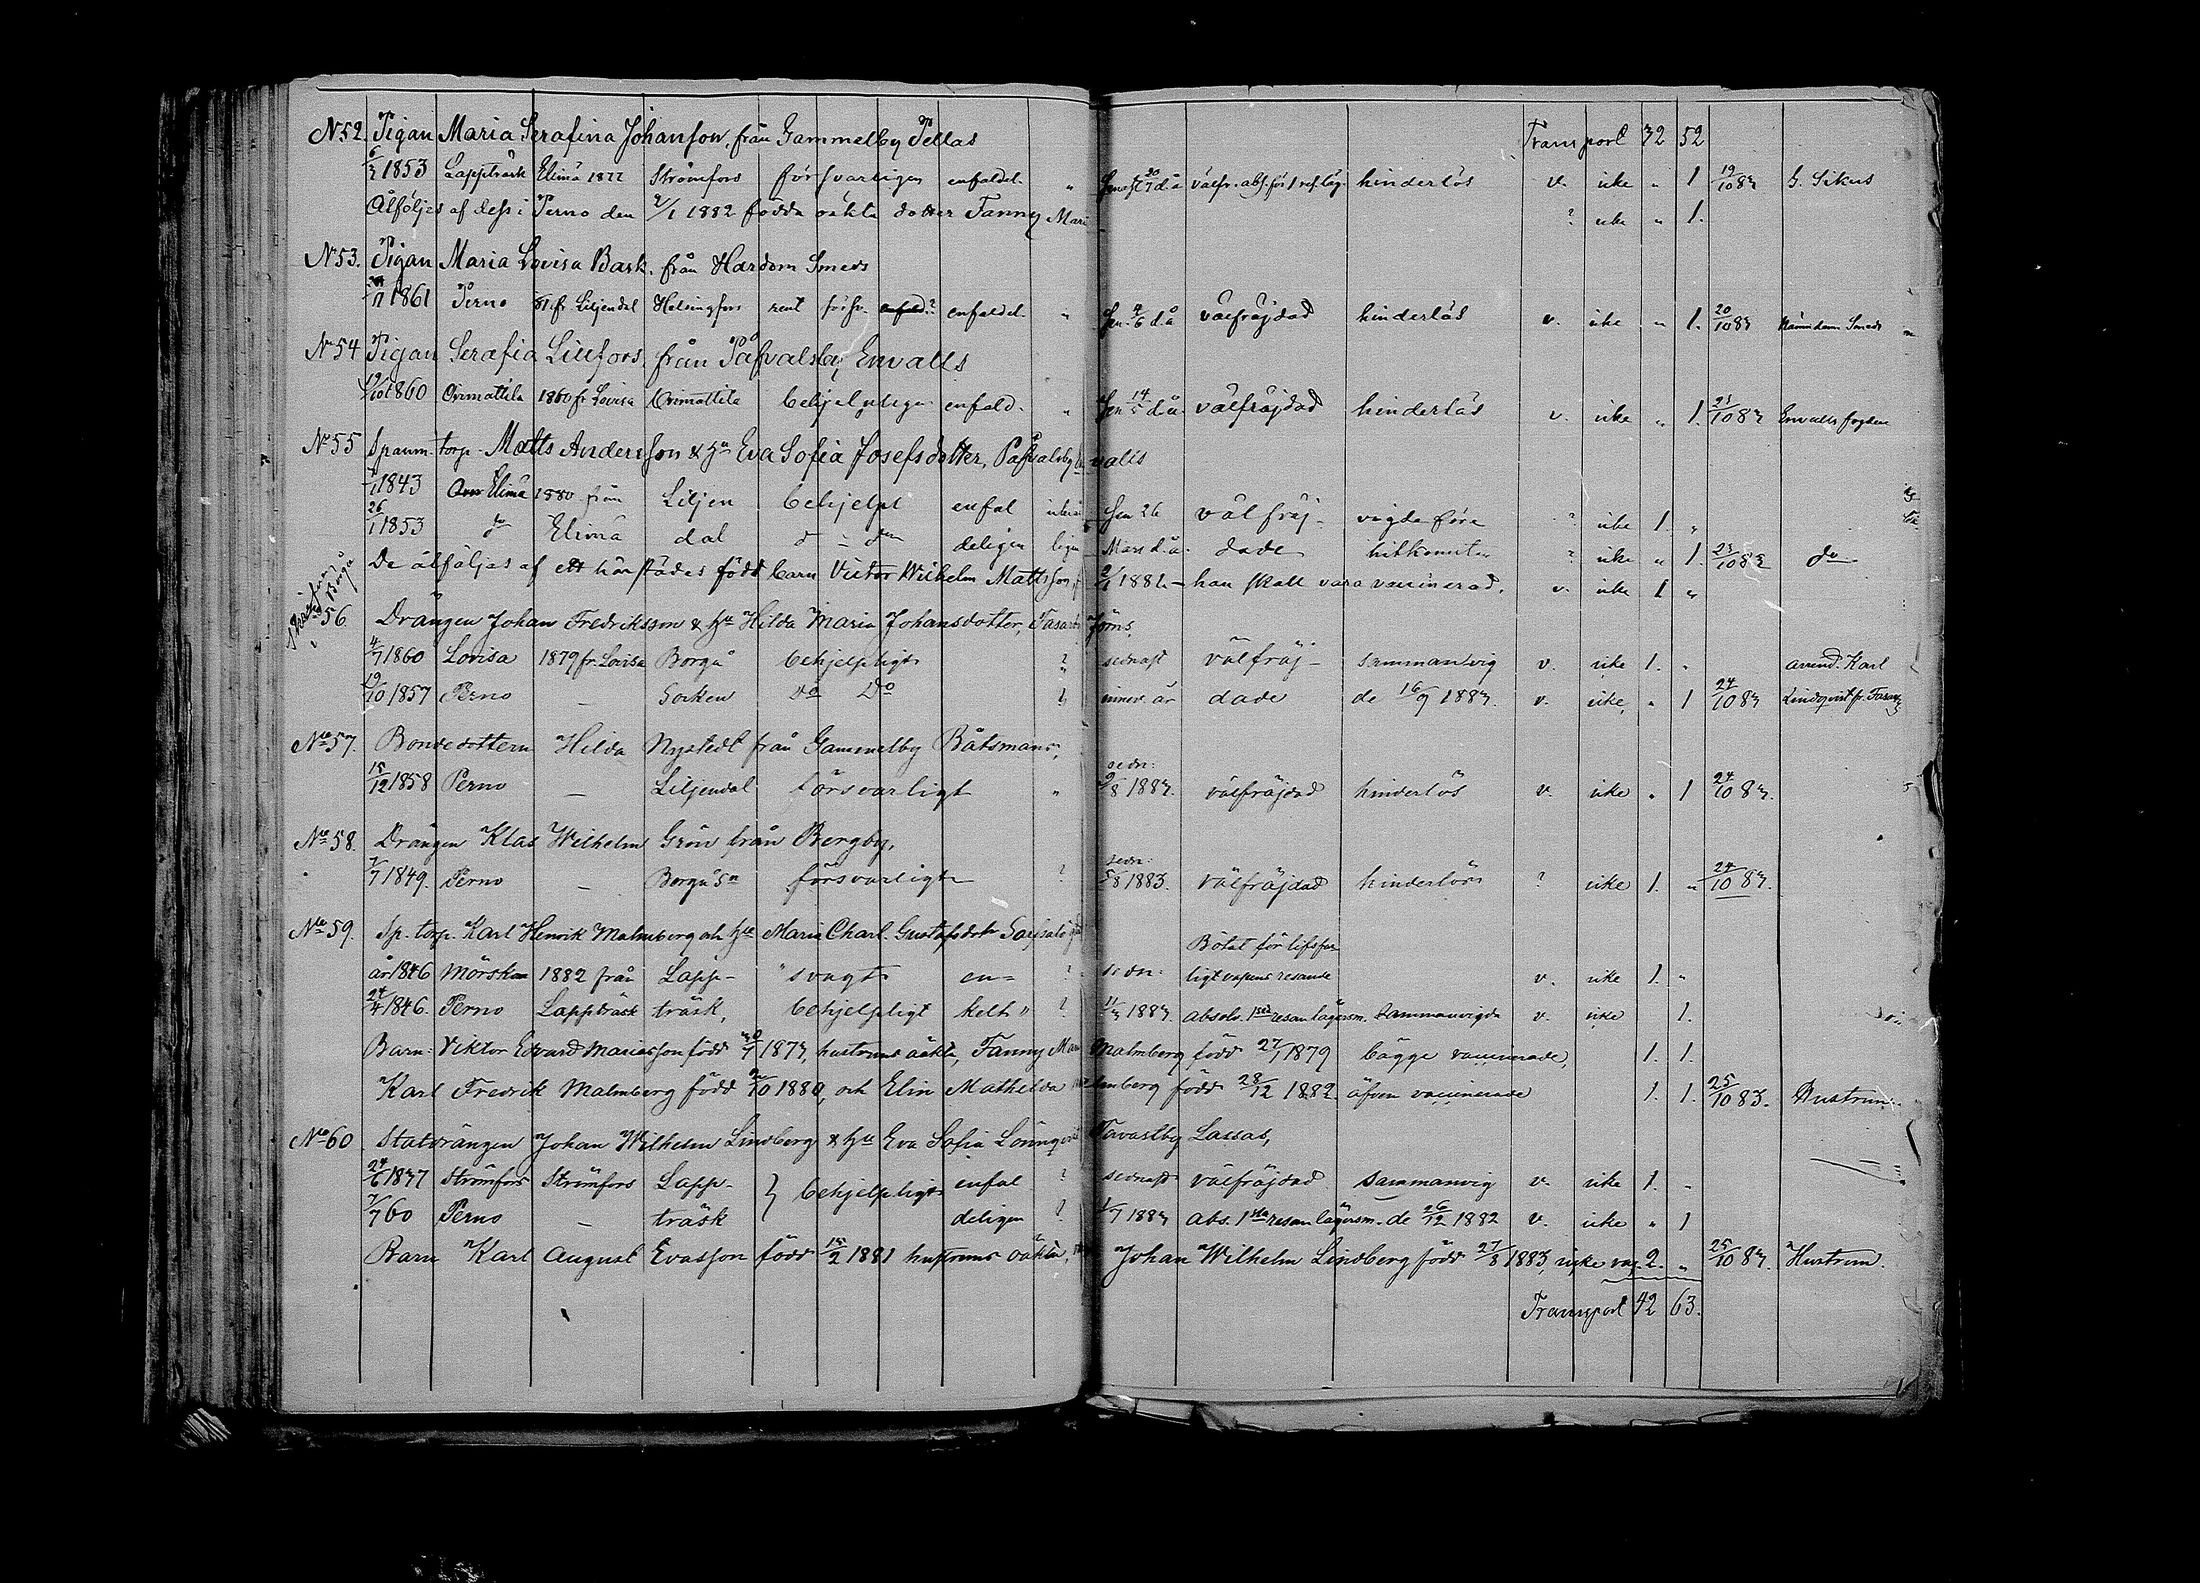 Transport 32 52
N 52. Pigan Maria Serafina Johansson, från Gammelby Pellas
6/2 1853 Lappträsk Elimä 1877 Strömfors försvarligen enfaldel. " Senast 30/7 då välfr. abs. för 1 res. läg. hinderlös v. icke " 1 19/10 83 G. Sikus
Åtföljes af dess i Perno den 2/1 1882 födda oäkta dotter Fanny Mari ? icke " 1.
N 53. Pigan Maria Lovisa Bask, från Hardom Smeds
/11 1861 Perno 81 fr. Liljendal Helsingfors rent försv. enfaldel. " Sen. 4/6 då välfräjdad hinderlös v. icke " 1. 20/10 83 Smeds
N 54 Pigan Serafia Lillfors, från Påfvalsby, Envalls
19/10 1860 Orimattila 1860 fr. Lovisa Orimattila behjelpligen enfald. " Sen 14/5 då välfräjdad hinderlös v. icke " 1. 23/10 83 Envalls fogden
N 55 Spanm. torp. Matts Andersson & Hu Eva Sofia Josefsdotter, Påfvalsby Envalls
/1 1843 Elimä 1880 från Liljen behjelpl enfal Sen 26 välfräj- vigda före ? icke 1. "
26/1 1853 do Elimä dal deligen ligen Mars d.å. dade hitkomsten ? icke " 1. 23/10 83 do
De åtföljas af ett härstädes född barn Victor Wilhelm Mattsson f. 2/1 1882 – han skall vara vaccinerad. v. icke 1 "
56. Drängen Johan Fredriksson & Hu Hilda Maria Johansdotter, Fasarby Jöms.
4/7 1860 Lovisa 1879 fr. Lovisa Borgå behjelpligt ? sednast välfräj- sammanvig v. icke 1. " arrend. Karl
19/10 1857 Perno — Socken Do Do ? innev. år dade de 16/9 1883. v. icke, " 1 24/10 83 Lindqvist fr. Fasarby
No 57. Bondedottern Hilda Nystedt från Gammelby Båtsmans,
sedn:
15/12 1858 Perno — Liljendal försvarligt " 9/8 1883. välfräjdad hinderlös v. icke " 1 24/10 83.
No 58. Drängen Klas Wilhelm Grön från Bergby,
sedn:
7/7 1849. Perno — Borgå Sn försvarligt ? 5/8 1883. välfräjdad hinderlös ? icke 1. " 24/10 83.
No 59. Sp. torp. Karl Henrik Malmberg och Hu Maria Charl. Gustafsdotr Sarfsalö
Bötat för lifsfar
år 1846 Mörskom 1882 från Lapp- "svagt en= ? sedn: ligt vapens resande v. icke 1. "
24/4 1846. Perno Lappträsk träsk, behjelpligt kelt " ? 11/3 1883. absolv. 1sta resan lägersm. Sammanvigda v. icke 1.
Barn: Viktor Edvard Mariasson född 30/7 1873, hustruns oäkta, Fanny Mari Malmberg född 27/1 1879 bägge vaccinerade, 1. 1.
Karl Fredrik Malmberg född /10 1880, och Elin Mathilda Malmberg född 28/12 1882. äfven vaccinerade 1. 1. 25/10 83. Hustrun.
No 60 Statdrängen Johan Wilhelm Lindberg & Hu Eva Sofia Lönnqvist Tavastby Lassas,
24/6 1837 Strömfors Strömfors Lapp- } behjelpligt enfal ? sednast välfräjdad sammanvig v. icke 1. "
7/7 60 Perno — träsk deligen ? 1/7 1883 abs. 1sta resan lägersm. de 26/12 1882 v. icke " 1
Barn Karl August Evasson född 15/2 1881 hustruns oäkta, Johan Wilhelm Lindberg född 27/8 1883, icke vac. 2. " 25/10 83. Hustrun.
Transport 42 63.